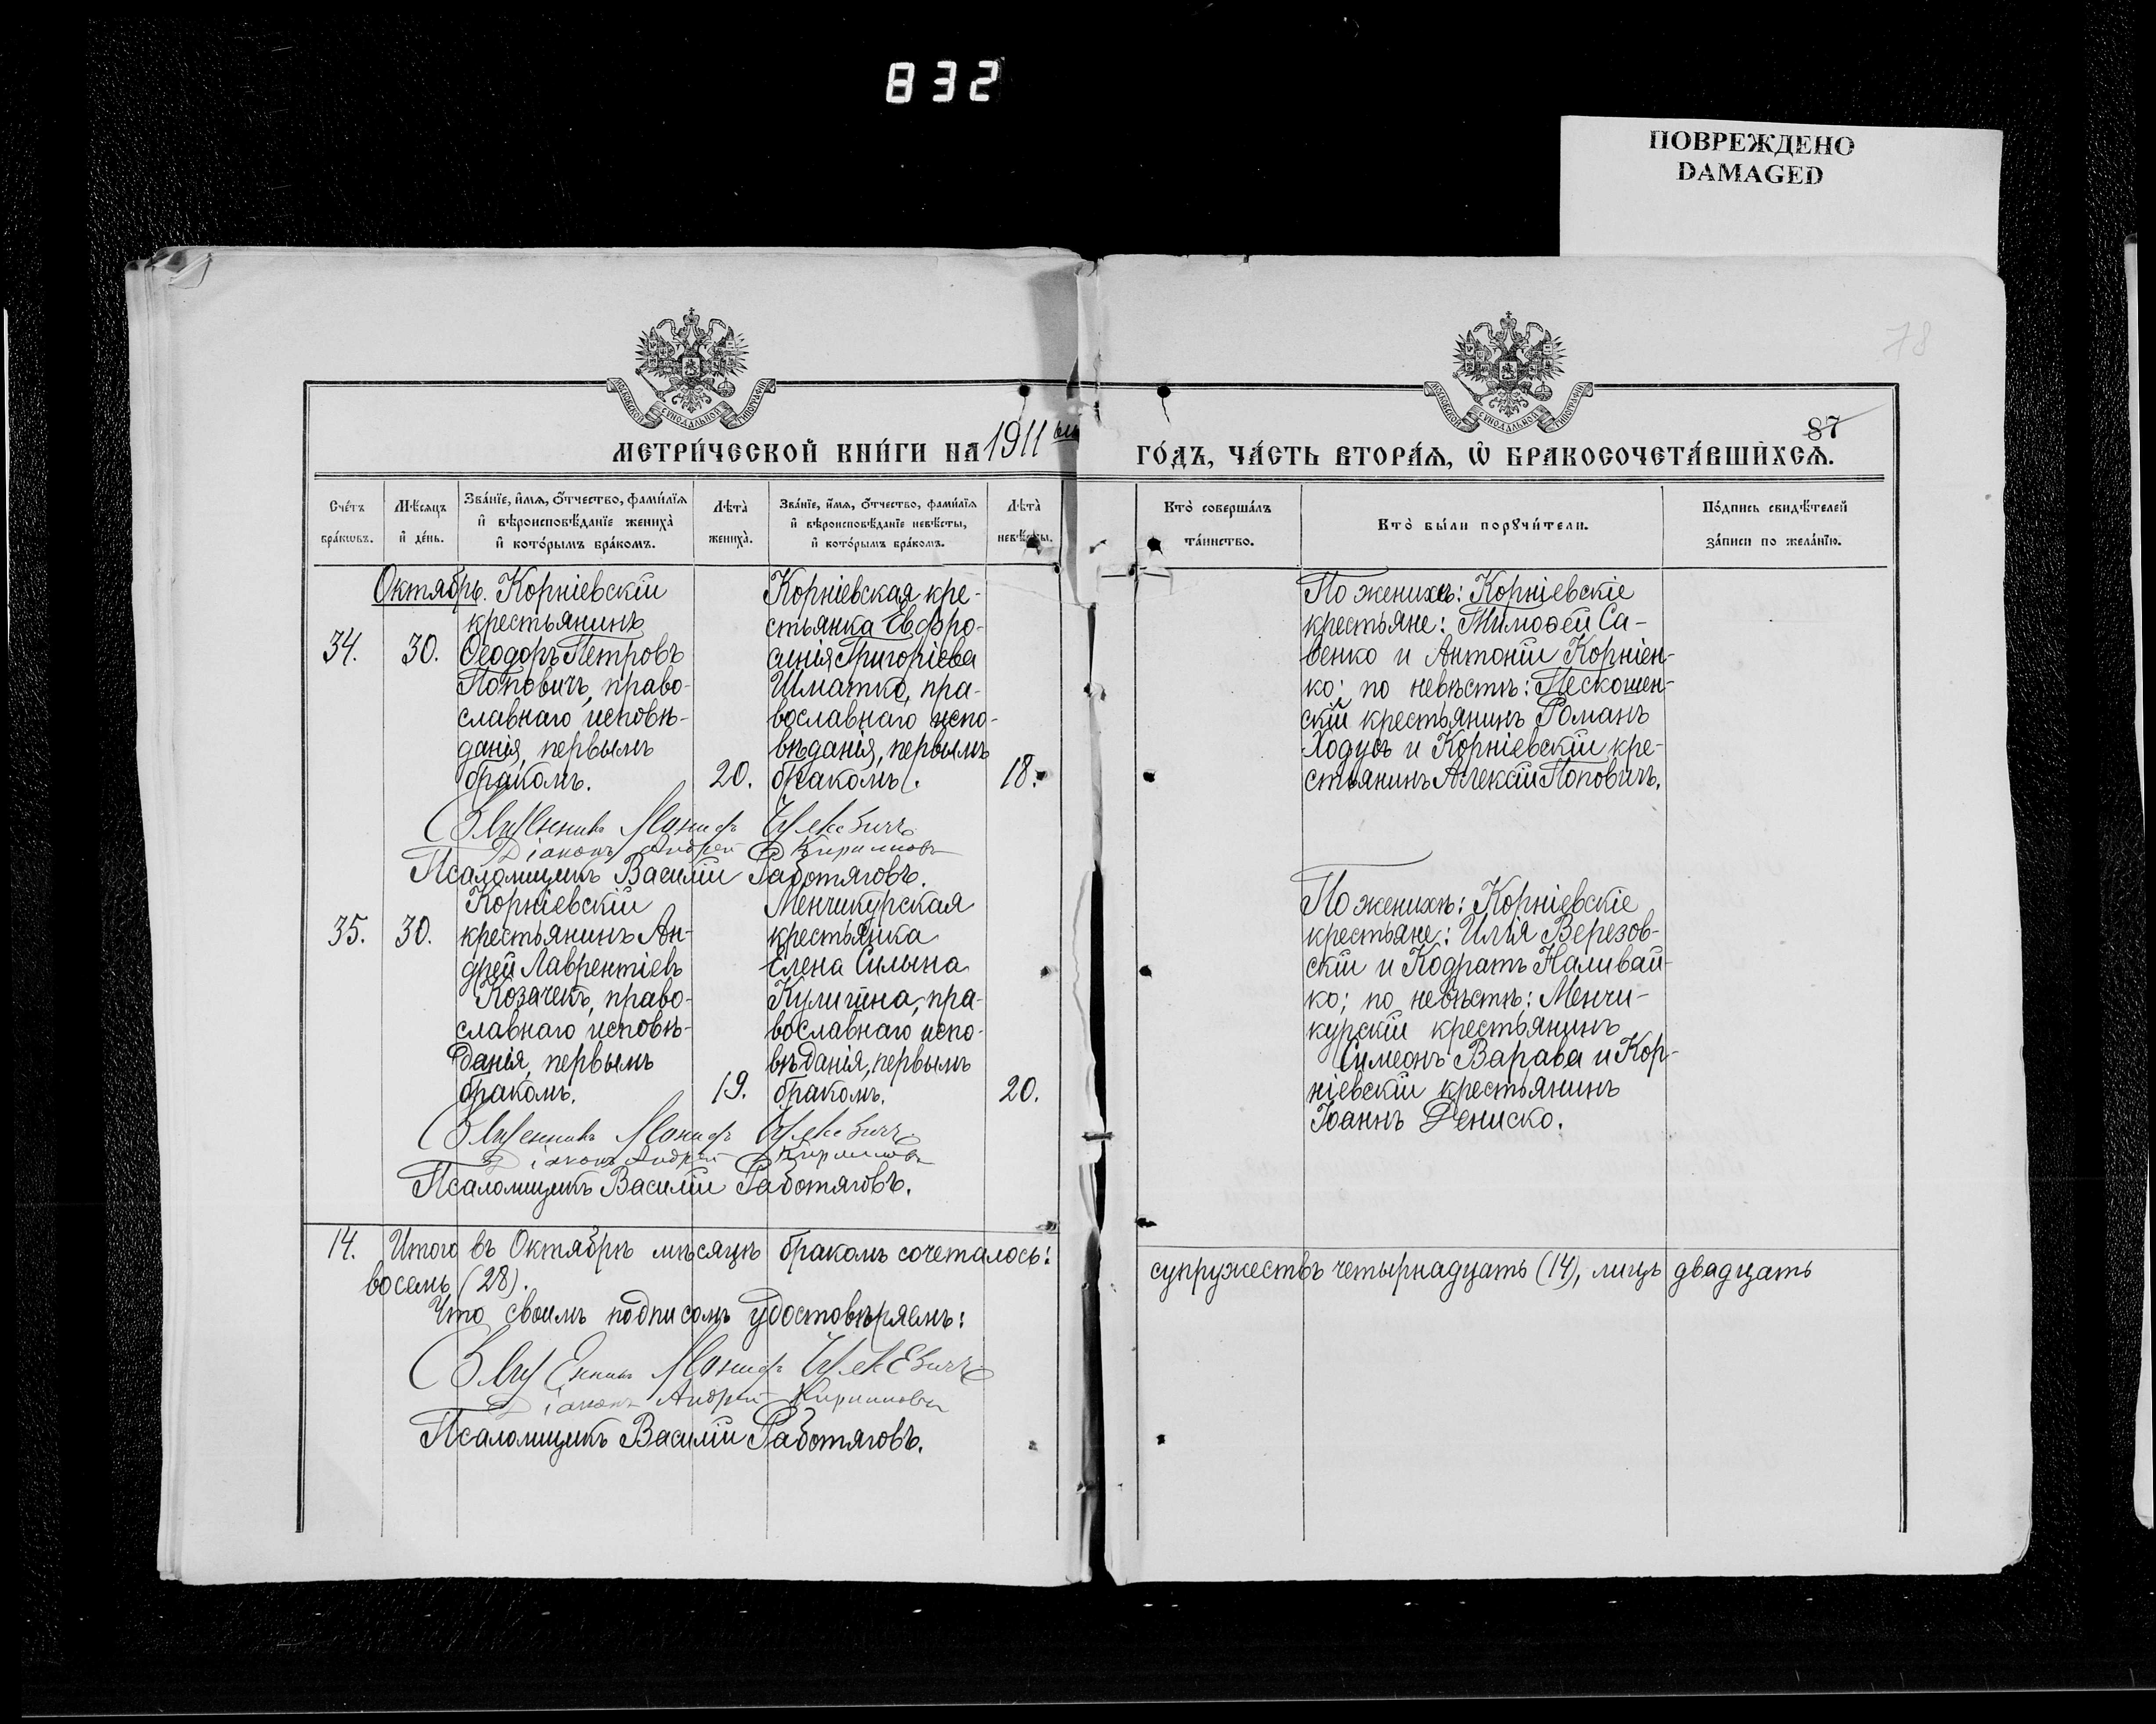 832
ПОВРЕЖДЕНО
DAMAGED
78
87
МЕТРИ́ЧЕСКОЙ КНИ́ГИ НА 1911 ГО́ДЪ, ЧА́СТЬ ВТОРА́Ѧ, Ѡ҆ БРАКОСОЧЕТА́ВШИХСѦ.
Сче́тъ бра́кѡвъ.
Мѣ́сѧцъ и҆ де́нь.
Зва́нїе, и҆́мѧ, ѻ҆́тчество, фами́лїѧ
и҆ вѣроисповѣ́данїе жениха̀
и҆ кото́рымъ бра́комъ.
Лѣта̀ жениха̀.
Зва́нїе, и҆́мѧ, ѻ҆́тчество, фами́лїѧ
и҆ вѣроисповѣ́данїе невѣ́сты,
и҆ кото́рымъ бра́комъ.
Лѣта̀ невѣ́сты.
Кто̀ соверша́лъ та́инство.
Кто̀ бы́ли порꙋчи́тели.
По́дпись свидѣ́телей за́писи по жела́нїю.
Октябрь.
34.
30.
Корніевскій
крестьянинъ
Ѳеодоръ Петровъ
Поповичъ, право-
славнаго исповѣ-
данія, первымъ
бракомъ.
20.
Корніевская кре-
стьянка Евфро-
синія Григоріева
Шматко, пра-
вославнаго испо-
вѣданія, первымъ
бракомъ.
18.
По женихѣ: Корніевскіе
крестьяне: Тимоѳей Са-
венко и Антоній Корніен-
ко; по невѣстѣ: Пескошен-
скій крестьянинъ Романъ
Ходусъ и Корніевскій кре-
стьянинъ Алексій Поповичъ.
Діаконъ Андрей Кирилловъ
Псаломщикъ Василій Работяговъ.
35.
30.
Корніевскій
крестьянинъ Ан-
дрей Лаврентіевъ
Козачекъ, право-
славнаго исповѣ-
данія, первымъ
бракомъ.
19.
Менчикурская
крестьянка
Елена Силына
Кулигина, пра-
вославнаго испо-
вѣданія, первымъ
бракомъ.
20.
По женихѣ: Корніевскіе
крестьяне: Илія Верезов-
скій и Кодратъ Наливай-
ко; по невѣстѣ: Менчи-
курскій крестьянинъ
Симеонъ Варава и Кор-
ніевскій крестьянинъ
Іоаннъ Дениско.
Діаконъ Андрей Кирилловъ
Псаломщикъ Василій Работяговъ.
14. Итого въ Октябрѣ мѣсяцѣ бракомъ сочеталось: супружествъ четырнадцать (14), лицъ двадцать
восемь (28).
Что своимъ подписомъ удостовѣряемъ:
Діаконъ Андрей Кирилловъ
Псаломщикъ Василій Работяговъ.